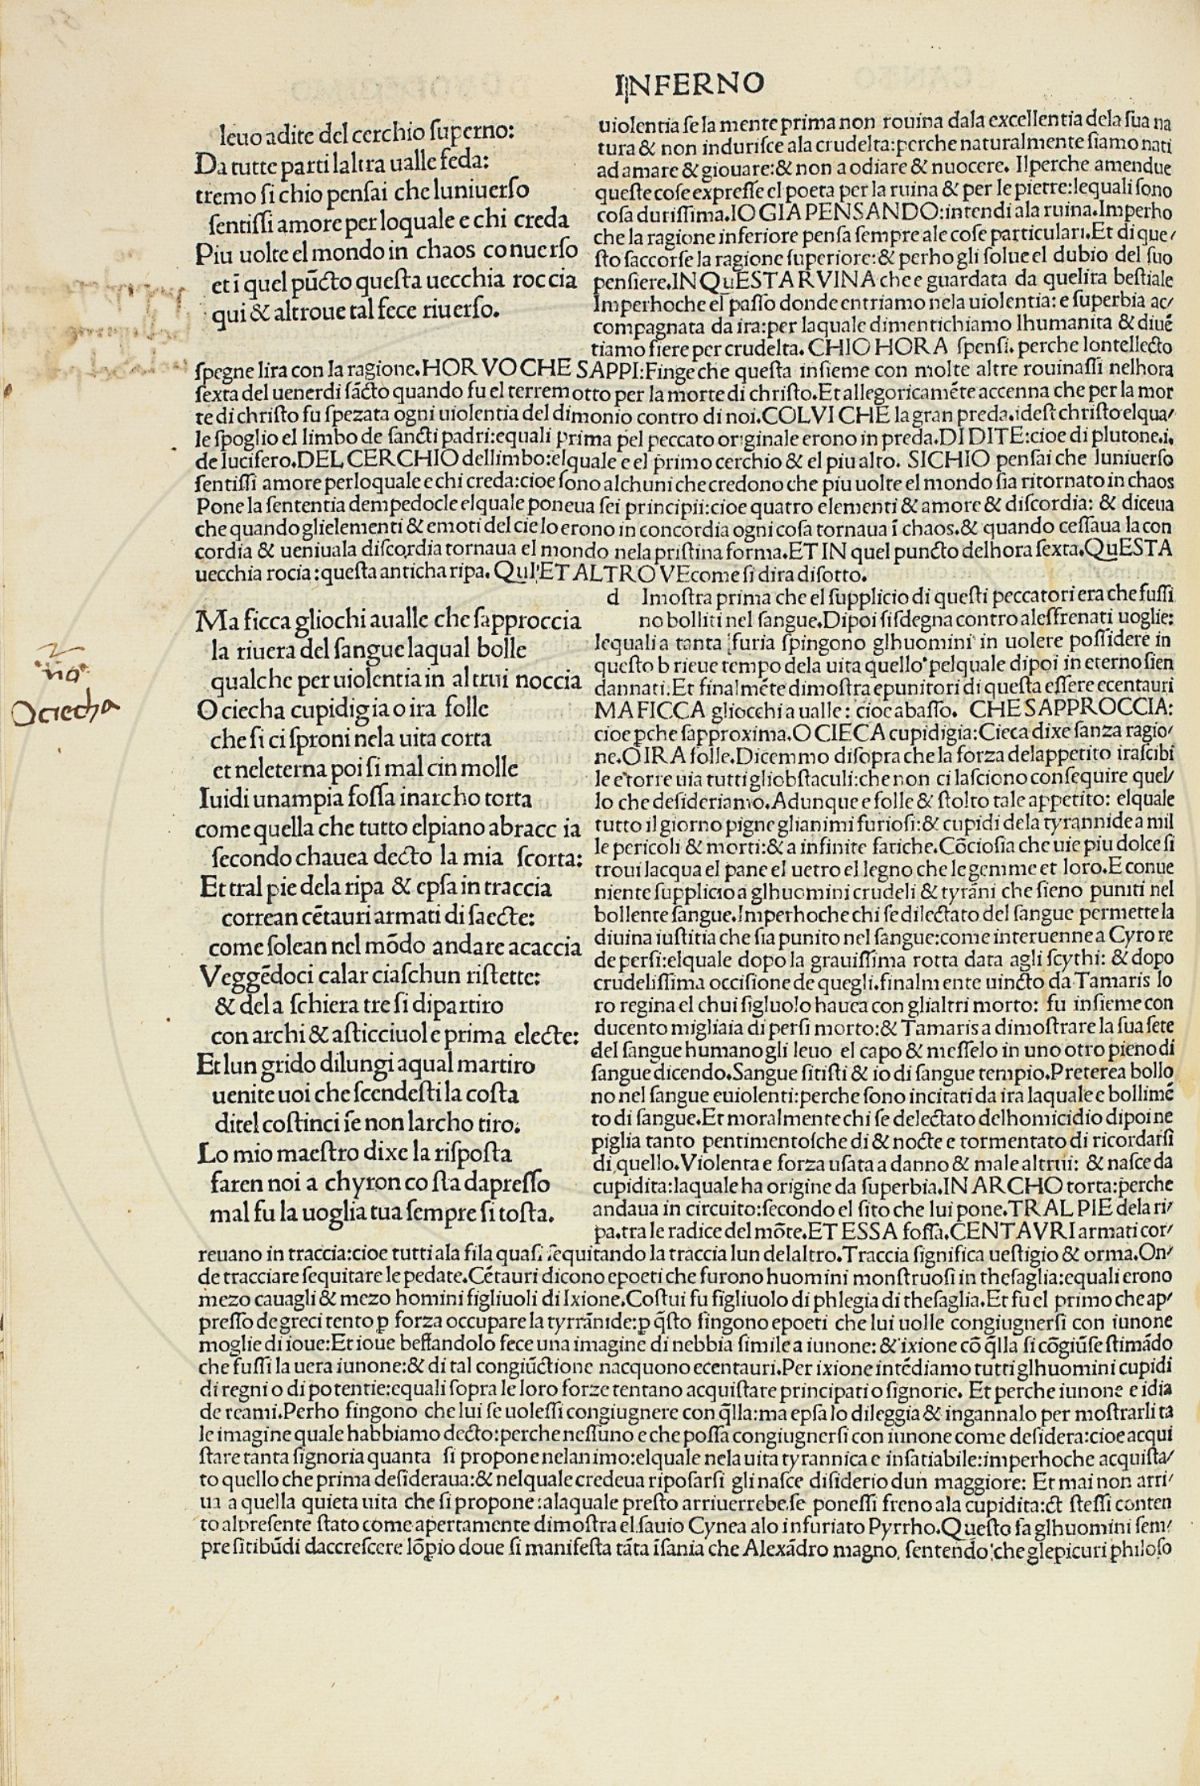 INFERNO
leuo adite del cerchio superno:
Da tutte parti laltra ualle feda:
tremo si chio pensai che luniuerso
sentissi amore per loquale e chi creda
Piu uolte el mondo in chaos conuerso
et ī quel pūcto questa uecchia roccia
qui & altroue tal fece riuerso.
uiolentia se la mente prima non rouina dala excellentia dela sua na
tura & non indurisce ala crudelta: perche naturalmente siamo nati
ad amare & giouare: & non a odiare & nuocere. Il perche amendue
queste cose expresse el poeta per la ruina & per le pietre: lequali sono
cosa durissima. IO GIA PENSANDO: intendi ala ruina. Imperho
che la ragione inferiore pensa sempre ale cose particulari. Et di que/
sto saccorse la ragione superiore: & perho gli solue el dubio del suo
pensiere. IN QuESTA RVINA che e guardata da quelira bestiale
Imperhoche el passo donde entriamo nela uiolentia: e superbia ac/
compagnata da ira: per laquale dimentichiamo lhumanita & diuē
tiamo fiere per crudelta. CHIO HORA spensi. perche lontellecto
spegne lira con la ragione. HOR VO CHE SAPPI: Finge che questa insieme con molte altre rouinassi nelhora
sexta del uenerdi sācto quando fu el terremotto per la morte di christo. Et allegoricamēte accenna che per la mor
te di christo fu spezata ogni uiolentia del dimonio contro di noi. COLVI CHE la gran preda. idest christo elqua/
le spoglio el limbo de sancti padri: equali prima pel peccato originale erono in preda. DI DITE: cioe di plutone .i.
de lucifero. DEL CERCHIO del limbo: elquale e el primo cerchio & el piu alto. SI CHIO pensai che luniuerso
sentissi amore perloquale e chi creda: cioe sono alchuni che credono che piu uolte el mondo sia ritornato in chaos
Pone la sententia dempedocle elquale poneua sei principii: cioe quatro elementi & amore & discordia: & diceua
che quando glielementi & emoti del cielo erono in concordia ogni cosa tornaua ī chaos. & quando cessaua la con
cordia & ueniuala discordia tornaua el mondo nela pristina forma. ET IN quel puncto delhora sexta. QuESTA
uecchia rocia: questa anticha ripa. QuI ET ALTROVE come si dira disotto.
Ma ficca gliochi aualle che sapproccia
la riuera del sangue laqual bolle
qualche per uiolentia in altrui noccia
O ciecha cupidigia o ira folle
che si ci sproni nela uita corta
et neleterna poi si mal cin molle
Iuidi unampia fossa inarcho torta
come quella che tutto elpiano abraccia
secondo chauea decto la mia scorta:
Et tral pie dela ripa & epsa in traccia
correan cētauri armati di saecte:
come solean nel mōdo andare acaccia
Veggēdoci calar ciaschun ristette:
& dela schiera tre si dipartiro
con archi & asticciuole prima electe:
Et lun grido dilungi a qual martiro
uenite uoi che scendesti la costa
ditel costinci se non larcho tiro:
Lo mio maestro dixe la risposta
faren noi a chyron costa dapresso
mal fu la uoglia tua sempre si tosta.
d Imostra prima che el supplicio di questi peccatori era che fussi
no bolliti nel sangue. Dipoi si sdegna contro alesfrenati uoglie:
lequali a tanta furia spingono glhuomini in uolere possidere in
questo brieue tempo dela uita quello pelquale dipoi in eterno sien
dannati. Et finalmēte dimostra epunitori di questa essere ecentauri
MA FICCA gliocchi a ualle: cioe abasso. CHE SAPPROCCIA:
cioe pche sapproxima. O CIECA cupidigia: Cieca dixe sanza ragio/
ne. O IRA folle. Dicemmo disopra che la forza delappetito irascibi
le e torre uia tutti gliobstaculi: che non ci lasciono consequire quel/
lo che desideriamo. Adunque e folle & stolto tale appetito: elquale
tutto il giorno pigne glianimi furiosi: & cupidi dela tyrannide a mil
le pericoli & morti: & a infinite fatiche. Cōciosia che uie piu dolce si
troui lacqua el pane el uetro el legno che le gemme et loro. E conue
niente supplicio a glhuomini crudeli & tyrāni che sieno puniti nel
bollente sangue. Imperhoche chi se dilectato del sangue permette la
diuina iustitia che sia punito nel sangue: come interuenne a Cyro re
de persi: elquale dopo la grauissima rotta data agli scythi: & dopo
crudelissima occisione de quegli. finalmente uincto da Tamaris lo
ro regina el chui figluolo hauea con glialtri morto: fu insieme con
ducento migliaia di persi morto: & Tamaris a dimostrare la sua sete
del sangue humano gli leuo el capo & messelo in uno otro pieno di
sangue dicendo. Sangue sitisti & io di sangue tempio. Preterea bollo
no nel sangue euiolenti: perche sono incitati da ira laquale e bollimē
to di sangue. Et moralmente chi se delectato delhomicidio dipoi ne
piglia tanto pentimento che di & nocte e tormentato di ricordarsi
di quello. Violenta e forza usata a danno & male altrui: & nasce da
cupidita: laquale ha origine da superbia. IN ARCHO torta: perche
andaua in circuito: secondo el sito che lui pone. TRAL PIE dela ri/
pa. tra le radice del mōte. ET ESSA fossa. CENTAVRI armati cor/
reuano in traccia: cioe tutti ala fila quasi sequitando la traccia lun delaltro. Traccia significa uestigio & orma. On/
de tracciare sequitare le pedate. Cētauri dicono epoeti che furono huomini monstruosi in thesaglia: equali erono
mezo cauagli & mezo homini figliuoli di Ixione. Costui fu figliuolo di phlegia di thesaglia. Et fu el primo che ap/
presso de greci tento p forza occupare la tyrānide: p q̄sto fingono epoeti che lui uolle congiugnersi con iunone
moglie di ioue: Et ioue beffandolo fece una imagine di nebbia simile a iunone: & ixione cō q̄lla si cōgiūse stimādo
che fussi la uera iunone: & di tal congiūctione nacquono ecentauri. Per ixione intēdiamo tutti glhuomini cupidi
di regni o di potentie: equali sopra le loro forze tentano acquistare principati o signorie. Et perche iunone e idia
de reami. Perho fingono che lui se uolessi congiugnere con q̄lla: ma epsa lo dileggia & ingannalo per mostrarli ta
le imagine quale habbiamo decto: perche nessuno e che possa congiugnersi con iunone come desidera: cioe acqui
stare tanta signoria quanta si propone nelanimo: elquale nela uita tyrannica e insatiabile: imperhoche acquista/
to quello che prima desideraua: & nelquale credeua riposarsi gli nasce disiderio dun maggiore: Et mai non arri/
ua a quella quieta uita che si propone: alaquale presto arriuerrebe. se ponessi freno ala cupidita: & stessi conten
to alpresente stato come apertamente dimostra el sauio Cynea alo infuriato Pyrrho. Questo fa glhuomini sem/
pre sitibūdi daccrescere lōpio doue si manifesta tāta īsania che Alexādro magno, sentendo che glepicuri philoso
no
Ociecha